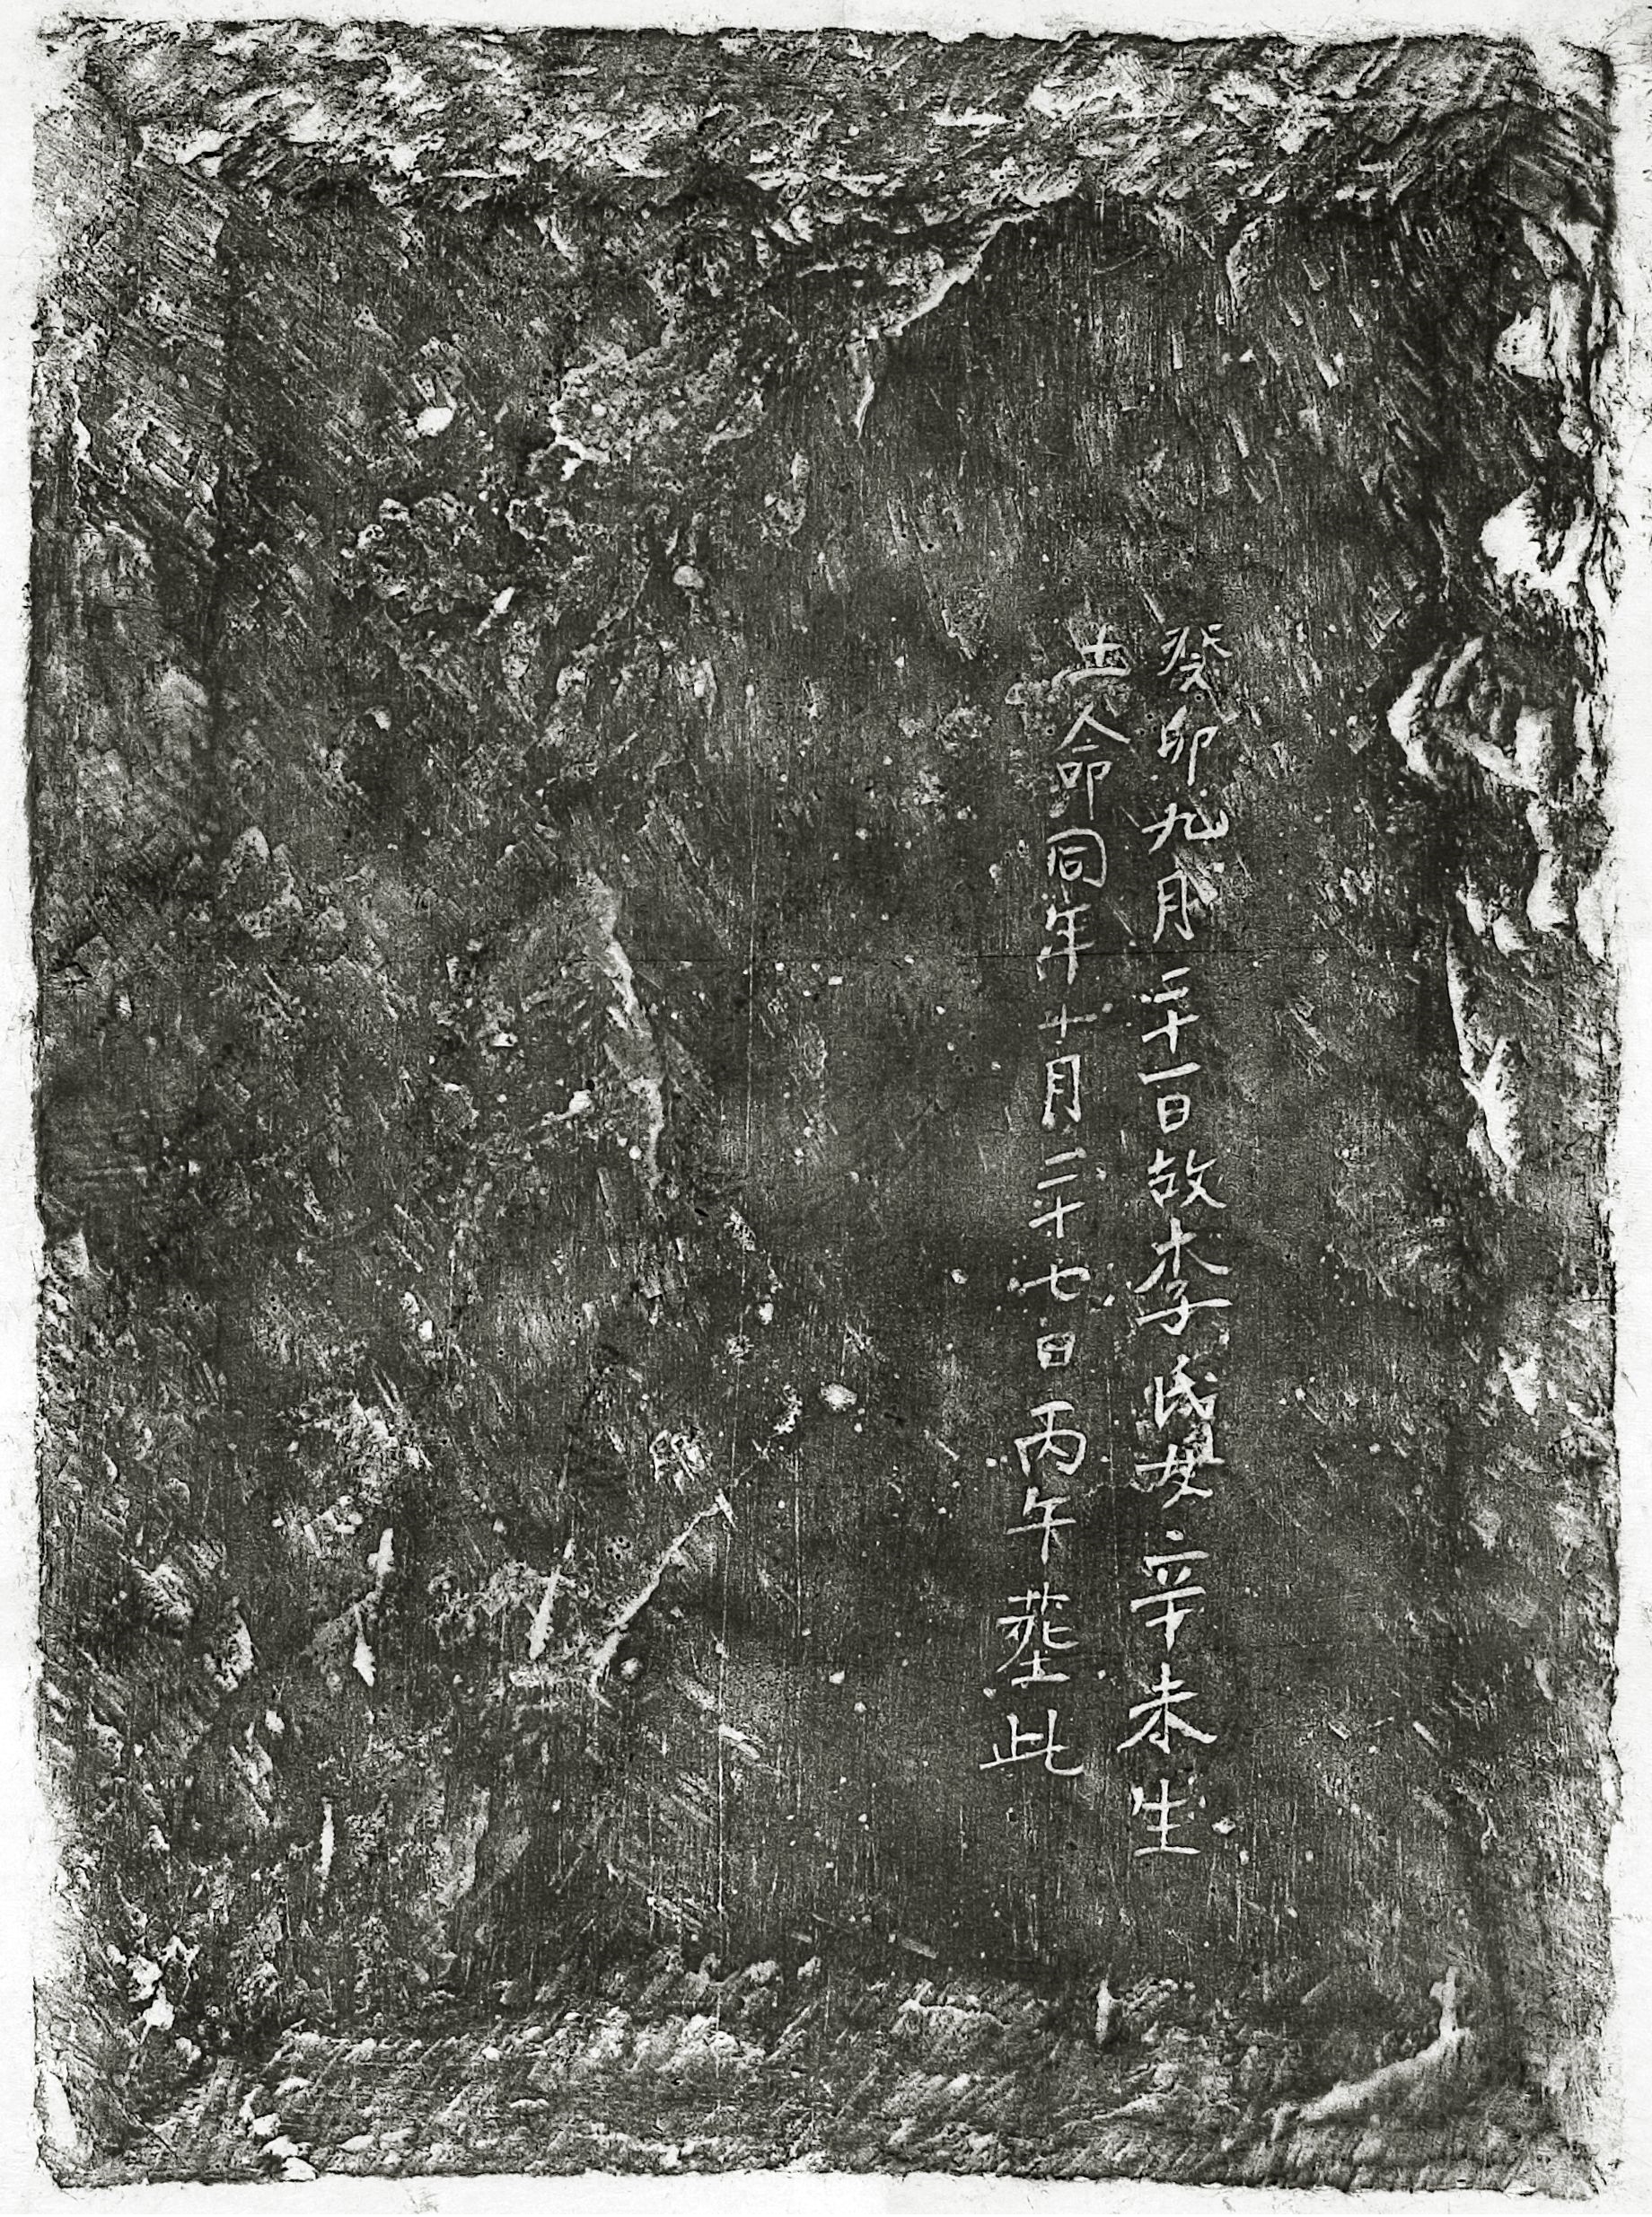 癸卯九月二十一日故李氏姐辛未生
土命同年十月二十七日丙午塟此